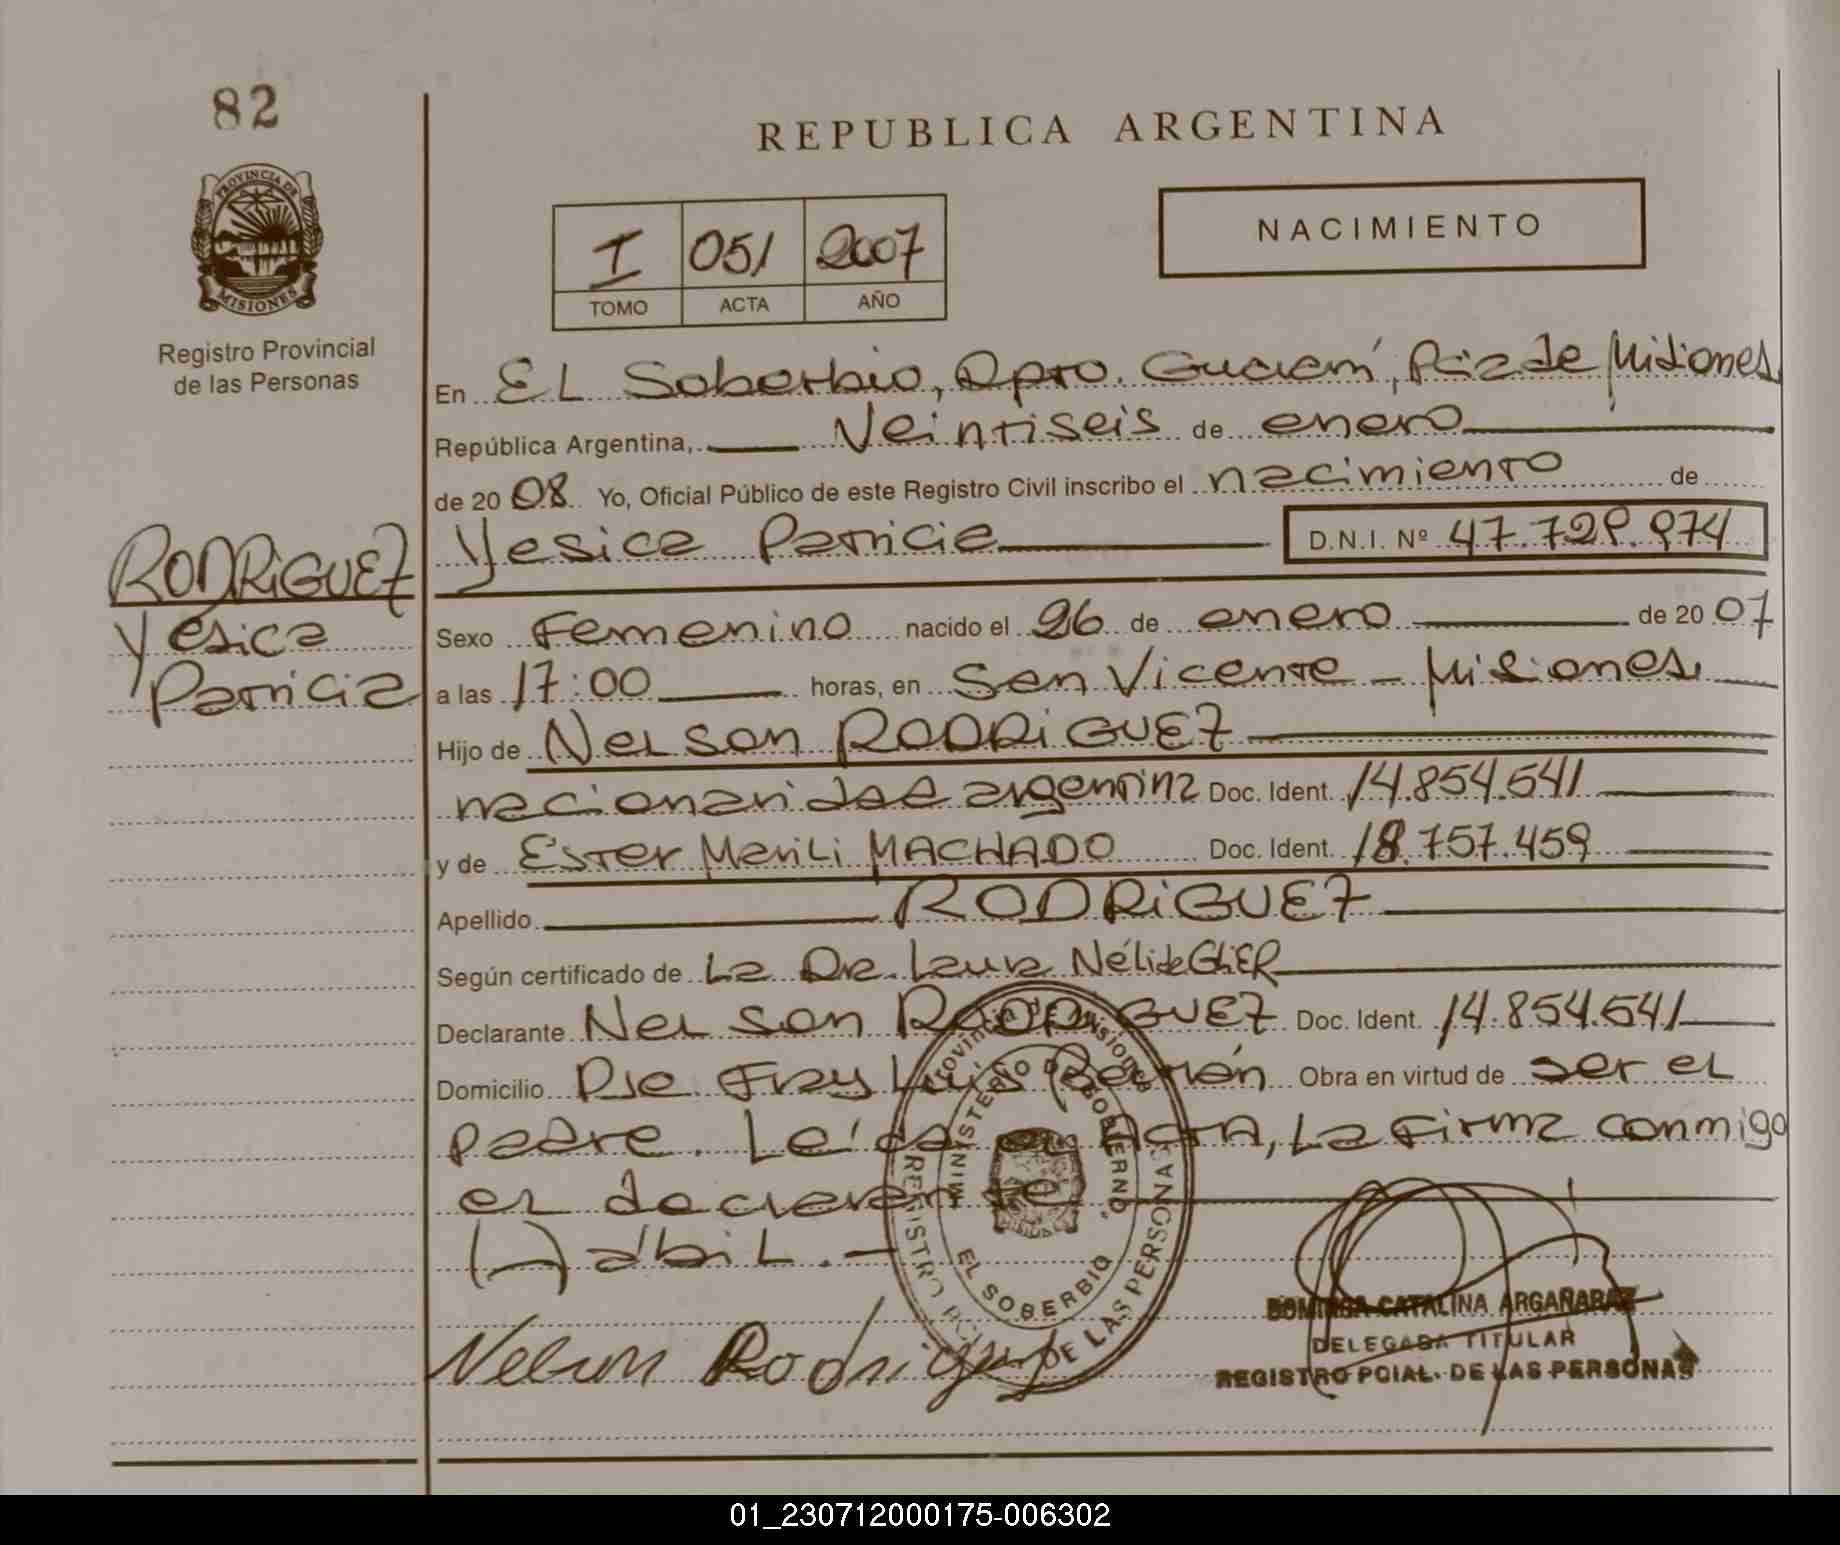 82
REPUBLICA ARGENTINA
PROVINCIA DE
MISIONES
Registro Provincial
de las Personas
I 051 2007
TOMO ACTA AÑO
NACIMIENTO
En EL Soberbio, Dpto. Guaraní, Pcia de Misiones
República Argentina, Veintiseis de enero
de 2008 Yo, Oficial Público de este Registro Civil inscribo el nacimiento de
Yesica Patricia D.N.I. Nº 47.729.974
RODRIGUEZ
Yesica
Patricia
Sexo Femenino nacido el 26 de enero de 2007
a las 17:00 horas, en San Vicente - Misiones
Hijo de Nelson RODRIGUEZ
nacionalidad argentina Doc. Ident. 14.854.541
y de Ester Marili MACHADO Doc. Ident. 18.757.459
Apellido RODRIGUEZ
Según certificado de La Dra. Laura Nélida
Declarante Nelson RODRIGUEZ Doc. Ident. 14.854.541
Domicilio Pje. Fray Luis Beltrán Obra en virtud de ser el
padre. Leída el ACTA, La Firma conmigo
el declarante
(-) abil. -
Provincia de Misiones
MINISTERIO DE GOBIERNO
REGISTRO PCIAL. DE LAS PERSONAS
EL SOBERBIO
Nelson Rodriguez
DOMINGA CATALINA ARGAÑARAZ
DELEGADA TITULAR
REGISTRO PCIAL. DE LAS PERSONAS
01_230712000175-006302